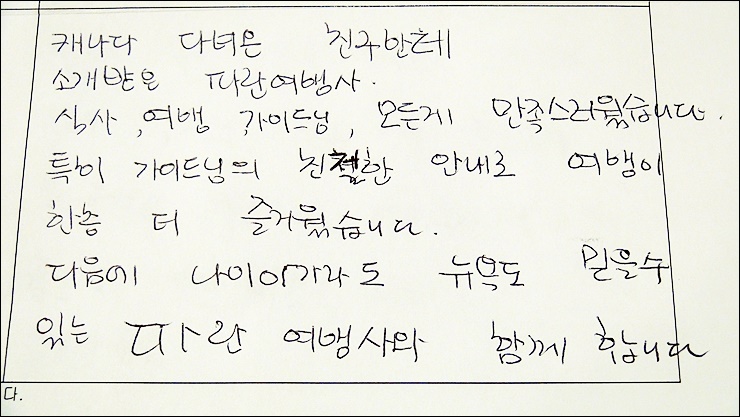 캐나다 다녀온 친구한테
소개받은 파란여행사.
식사, 여행, 가이드님, 모든게 만족스러웠습니다.
특히 가이드님의 친절한 안내로 여행이
한층 더 즐거웠습니다.
다음에 나이아가라도 뉴욕도 믿을수
있는 파란 여행사와 함께 합니다
다.